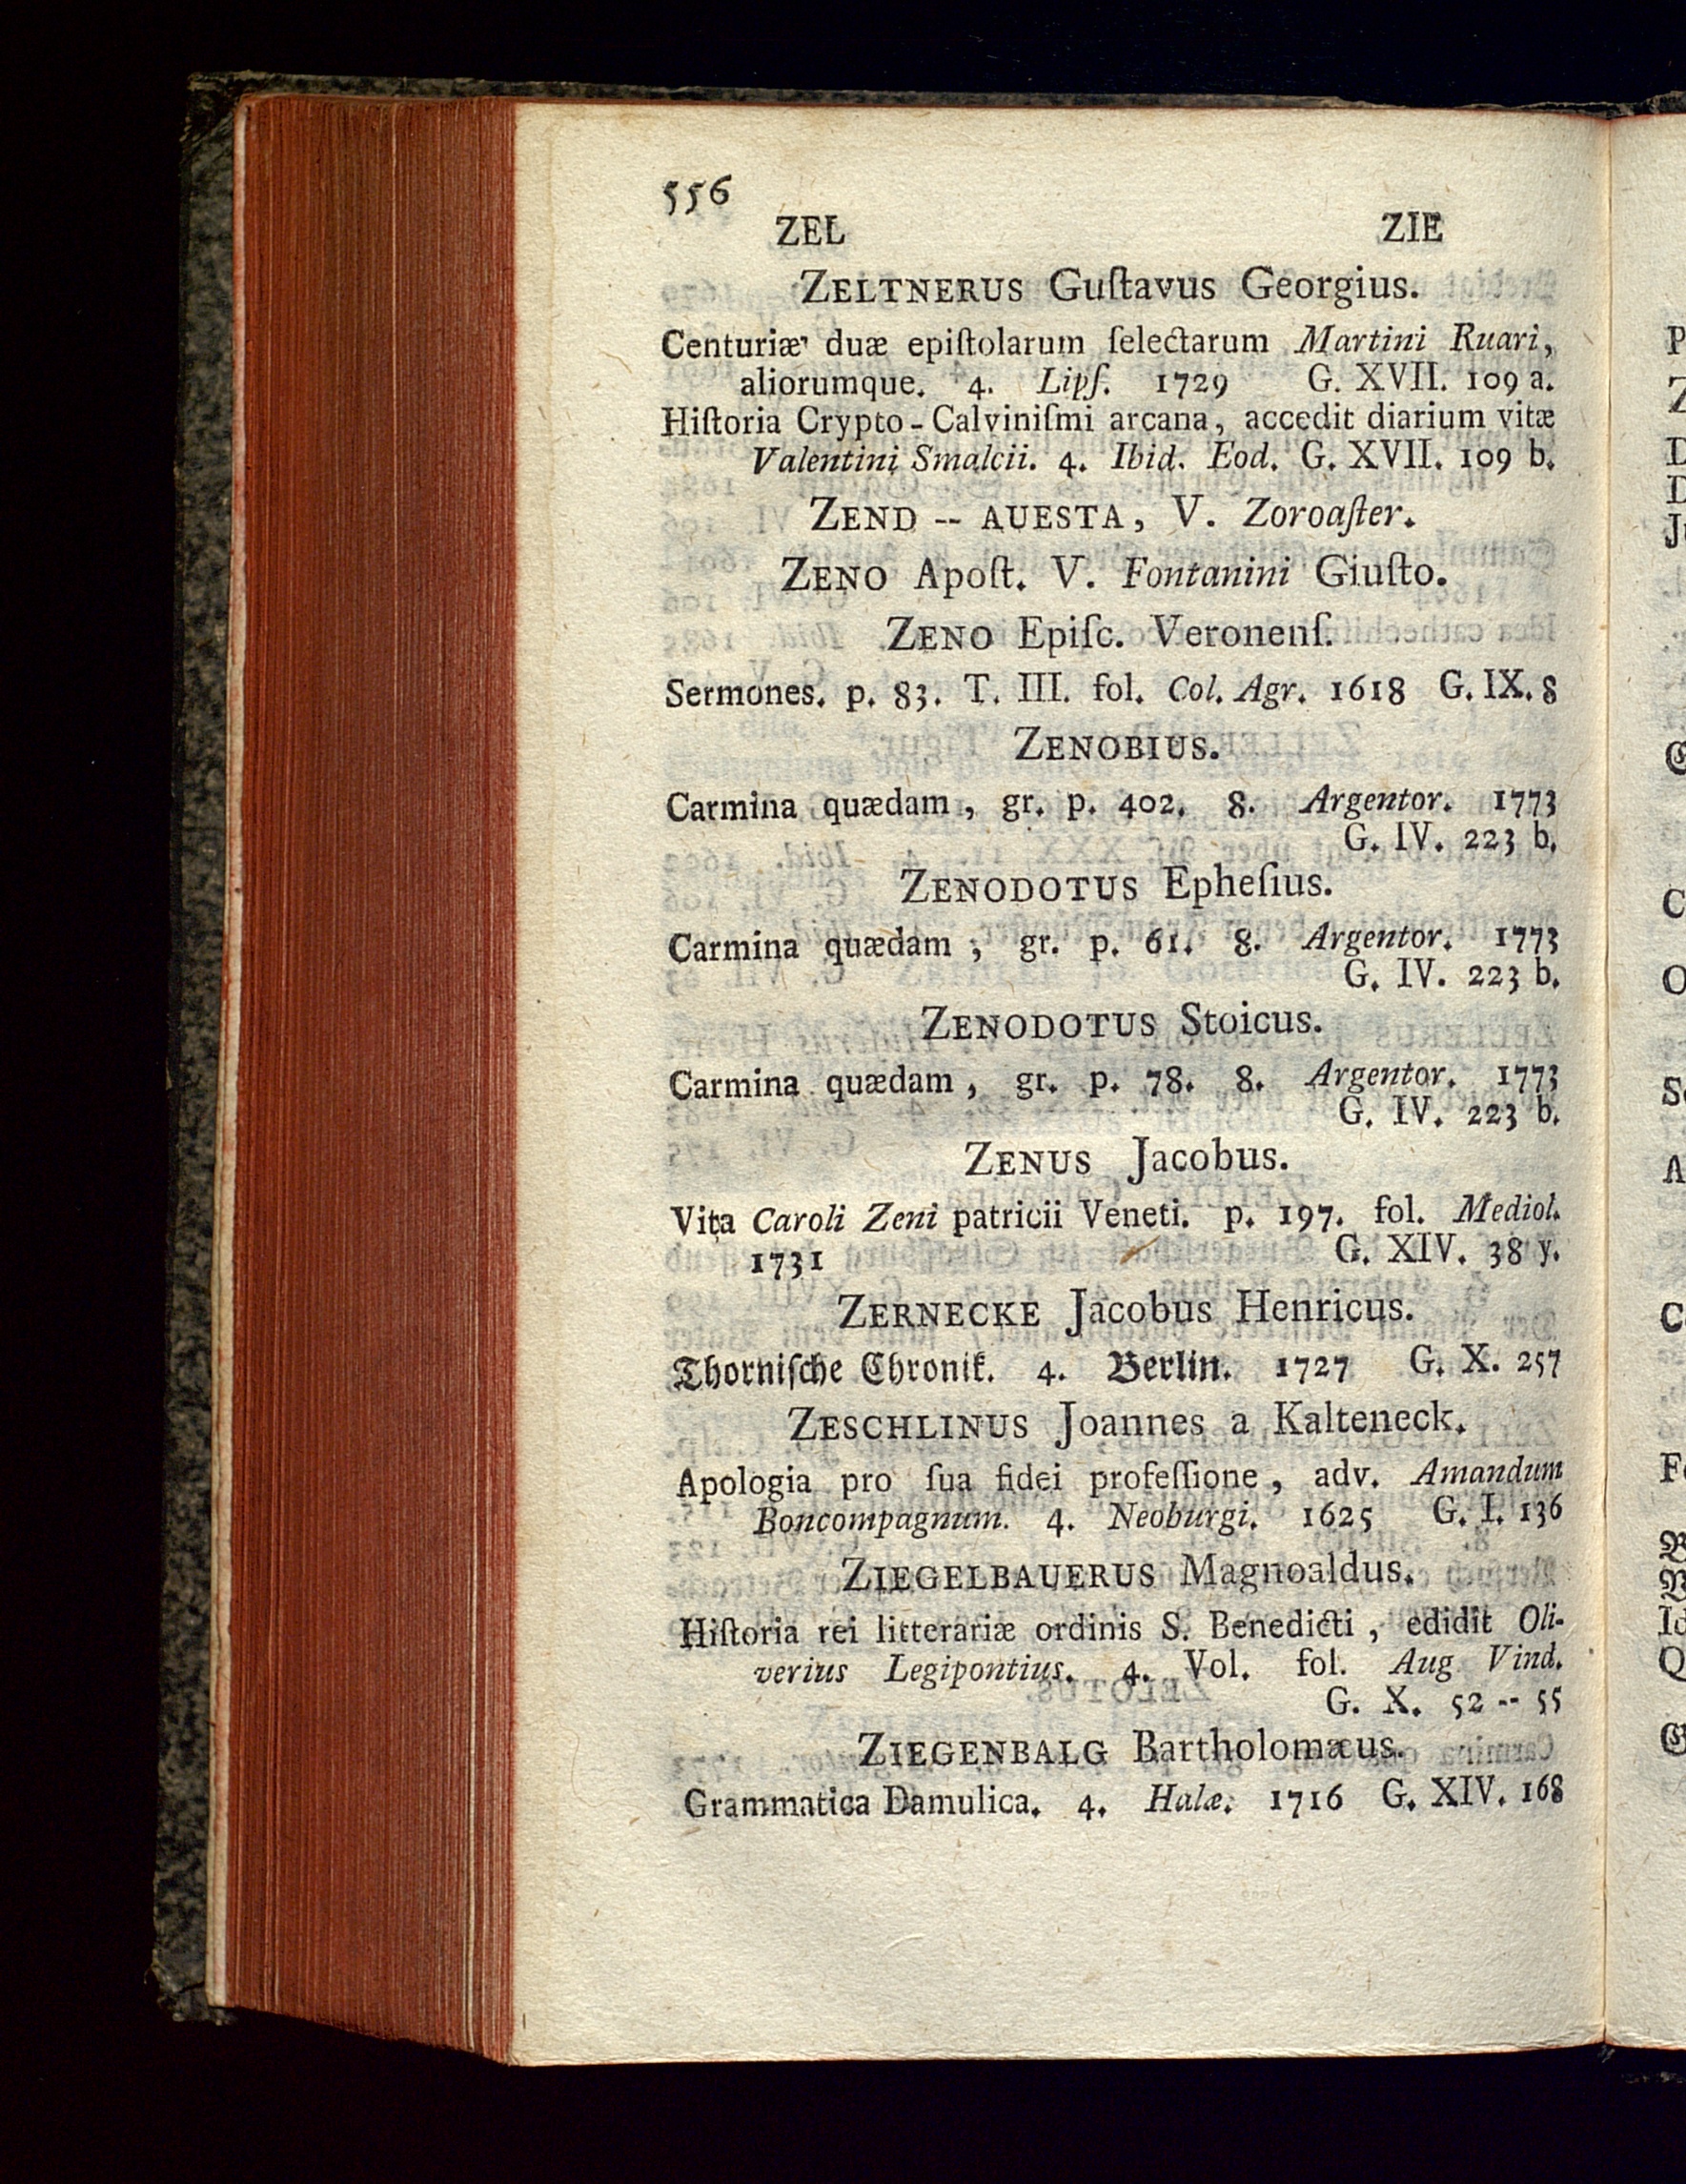 556
ZEL ZIE
ZELTNERUS Guſtavus Georgius.
Centuriæ duæ epiſtolarum ſelectarum Martini Ruari,
aliorumque. 4. Lipſ. 1729 G. XVII. 109 a.
Hiſtoria Crypto-Calviniſmi arcana, accedit diarium vitæ
Valentini Smalcii. 4. Ibid. Eod. G. XVII. 109 b.
ZEND -- AUESTA, V. Zoroaſter.
ZENO Apoſt. V. Fontanini Giuſto.
ZENO Epiſc. Veronenſ.
Sermones. p. 83. T. III. fol. Col. Agr. 1618 G. IX. 8
ZENOBIUS.
Carmina quædam, gr. p. 402. 8. Argentor. 1773
G. IV. 223 b.
ZENODOTUS Epheſius.
Carmina quædam, gr. p. 61. 8. Argentor. 1773
G. IV. 223 b.
ZENODOTUS Stoicus.
Carmina quædam, gr. p. 78. 8. Argentor. 1773
G. IV. 223 b.
ZENUS Jacobus.
Vita Caroli Zeni patricii Veneti. p. 197. fol. Mediol.
1731 G. XIV. 38 y.
ZERNECKE Jacobus Henricus.
Thorniſche Chronik. 4. Berlin. 1727 G. X. 257
ZESCHLINUS Joannes a Kalteneck.
Apologia pro ſua fidei profeſſione, adv. Amandum
Boncompagnum. 4. Neoburgi. 1625 G. I. 136
ZIEGELBAUERUS Magnoaldus.
Hiſtoria rei litterariæ ordinis S. Benedicti, edidit Oli-
verius Legipontius. 4. Vol. fol. Aug Vind.
G. X. 52 -- 55
ZIEGENBALG Bartholomæus.
Grammatica Damulica. 4. Halæ. 1716 G. XIV. 168